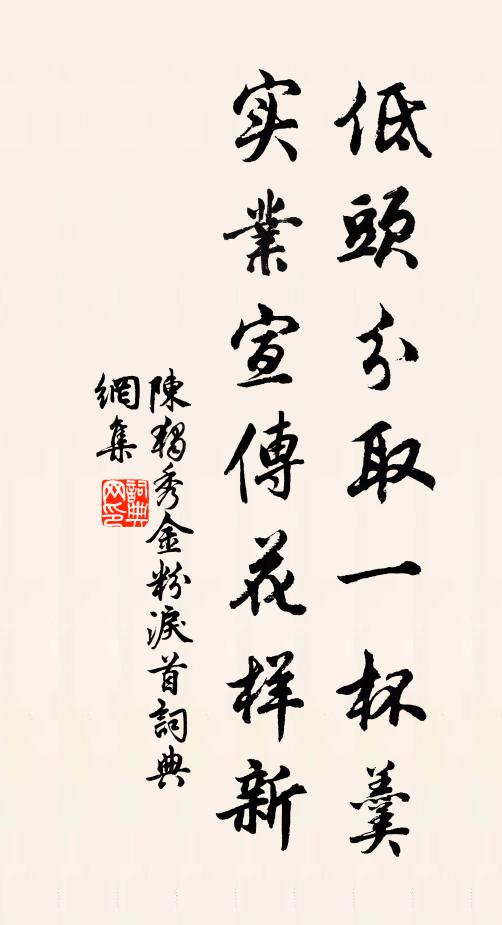 低頭分取一杯羹
实業宣傳花样新
陳獨秀金粉淚首詞典
網集
詞典
网印